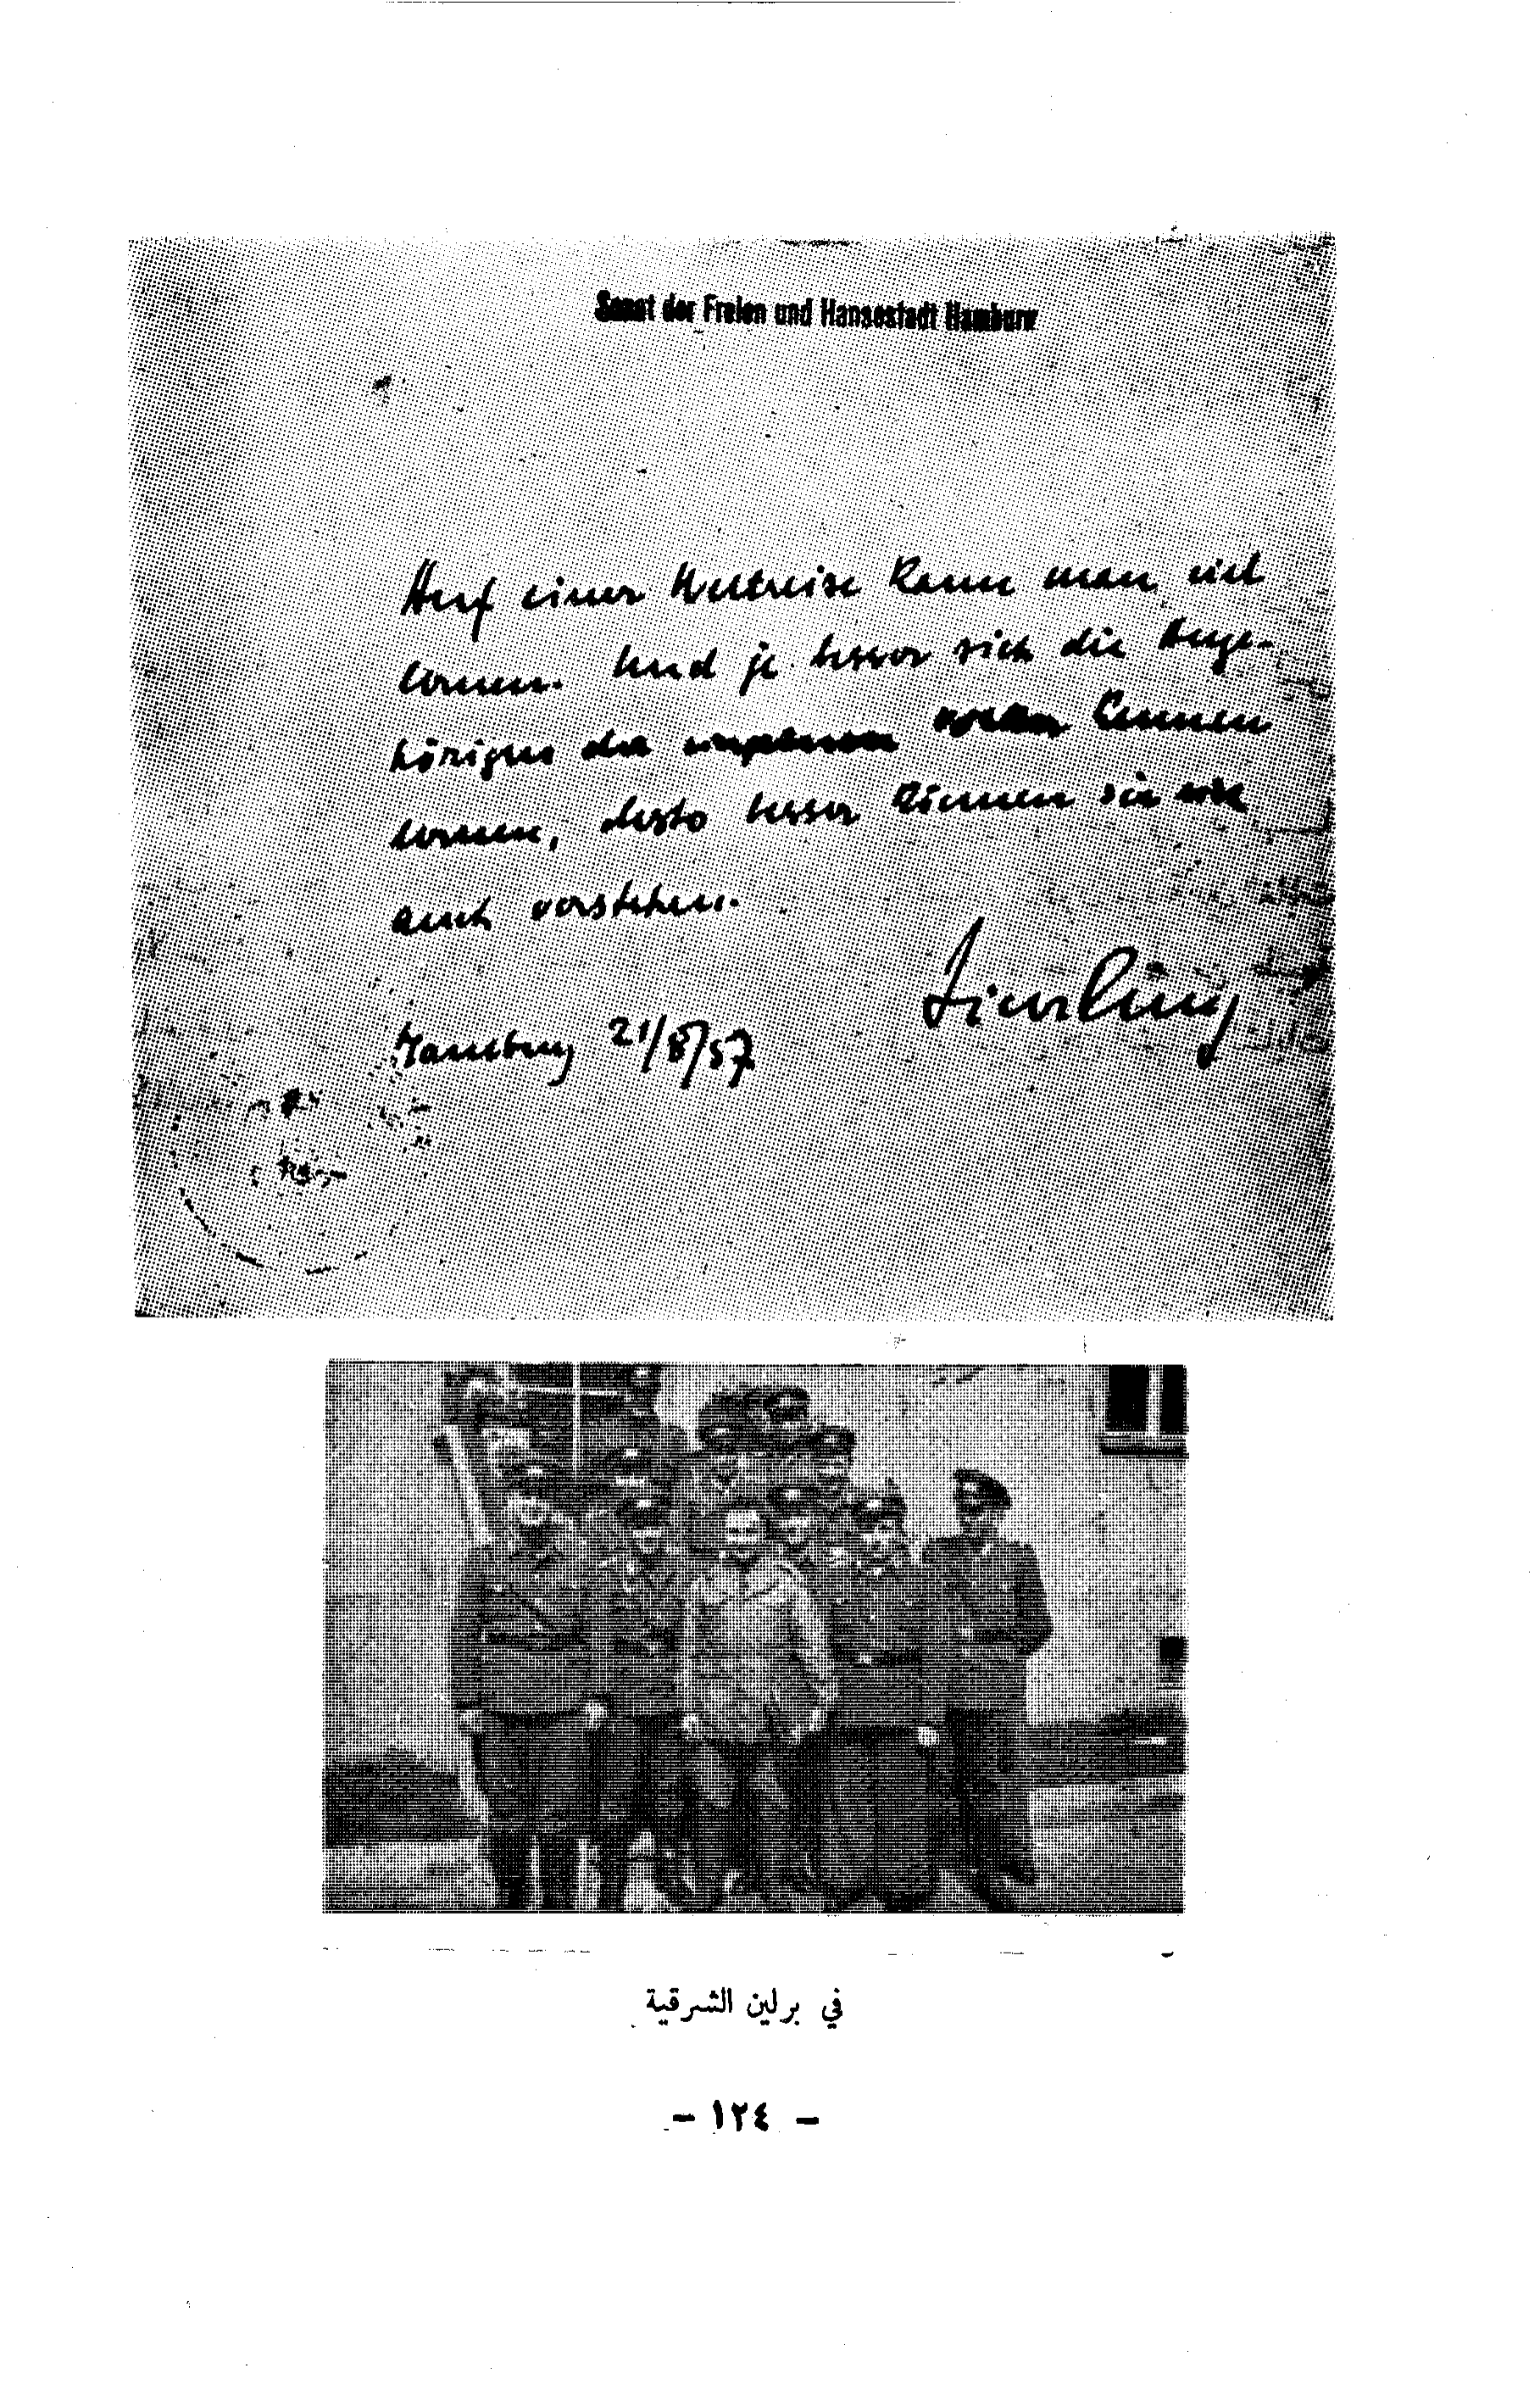 Senat der Freien und Hansestadt Hamburg
Auf einer Weltreise kann man viel
lernen. Und je besser sich die Ange-
hörigen der kennen
lernen, desto besser können sie sich
auch verstehen.
Hamburg 21/8/57
في برلين الشرقية
- ١٢٤ -